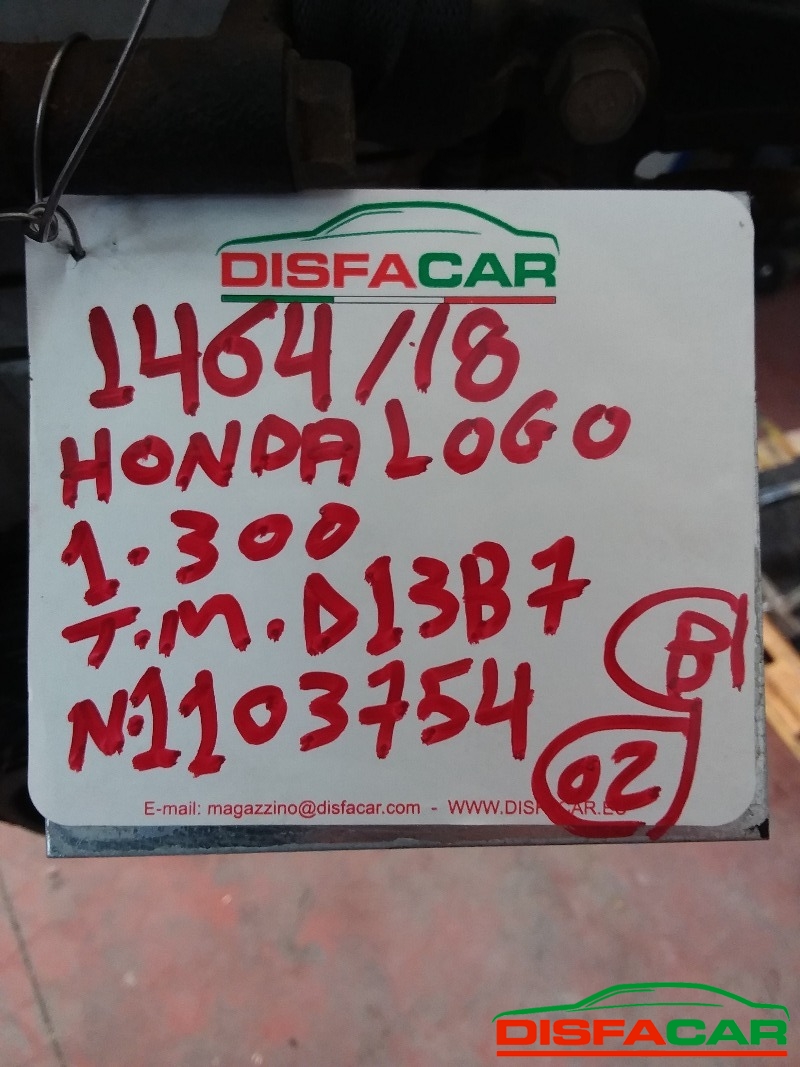 DISFACAR
1464/18
HONDA LOGO
1.300
T.M. D13B7
N.1103754
B
02
E-mail: magazzino@disfacar.com - WWW.DISFACAR.EU
DISFACAR